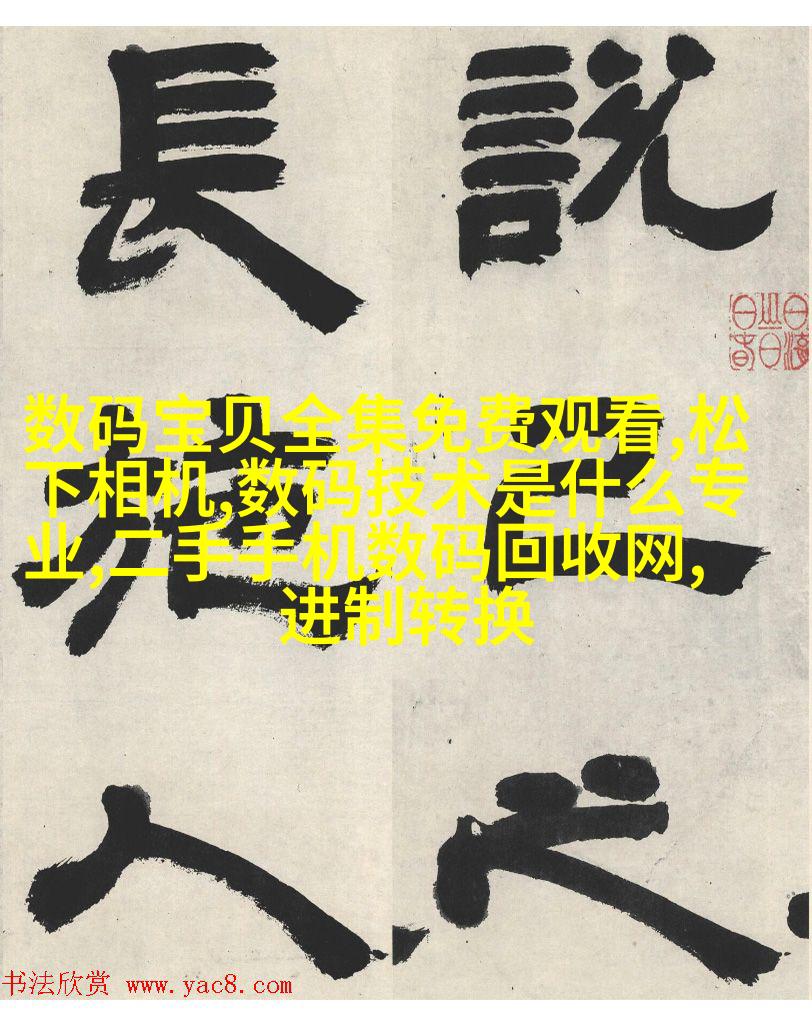 說己之
長施人
数码宝贝全集免费观看,松
下相机,数码技术是什么专
业,二手手机数码回收网,
进制转换
书法欣赏 www.yac8.com